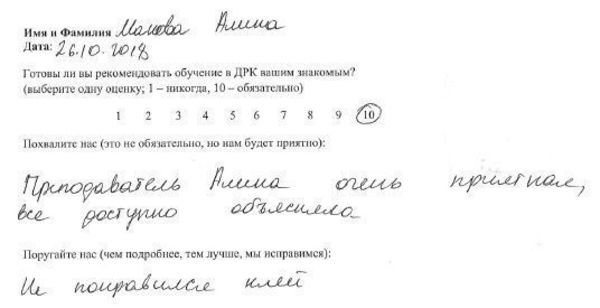 Имя и Фамилия Макова Алина
Дата: 26.10.2018
Готовы ли вы рекомендовать обучение в ДРК вашим знакомым?
(выберите одну оценку; 1 – никогда, 10 – обязательно)
1 2 3 4 5 6 7 8 9 10
Похвалите нас (это не обязательно, но нам будет приятно):
Преподаватель Алина очень приятная,
все доступно объяснила
Поругайте нас (чем подробнее, тем лучше, мы исправимся):
Не понравился клей